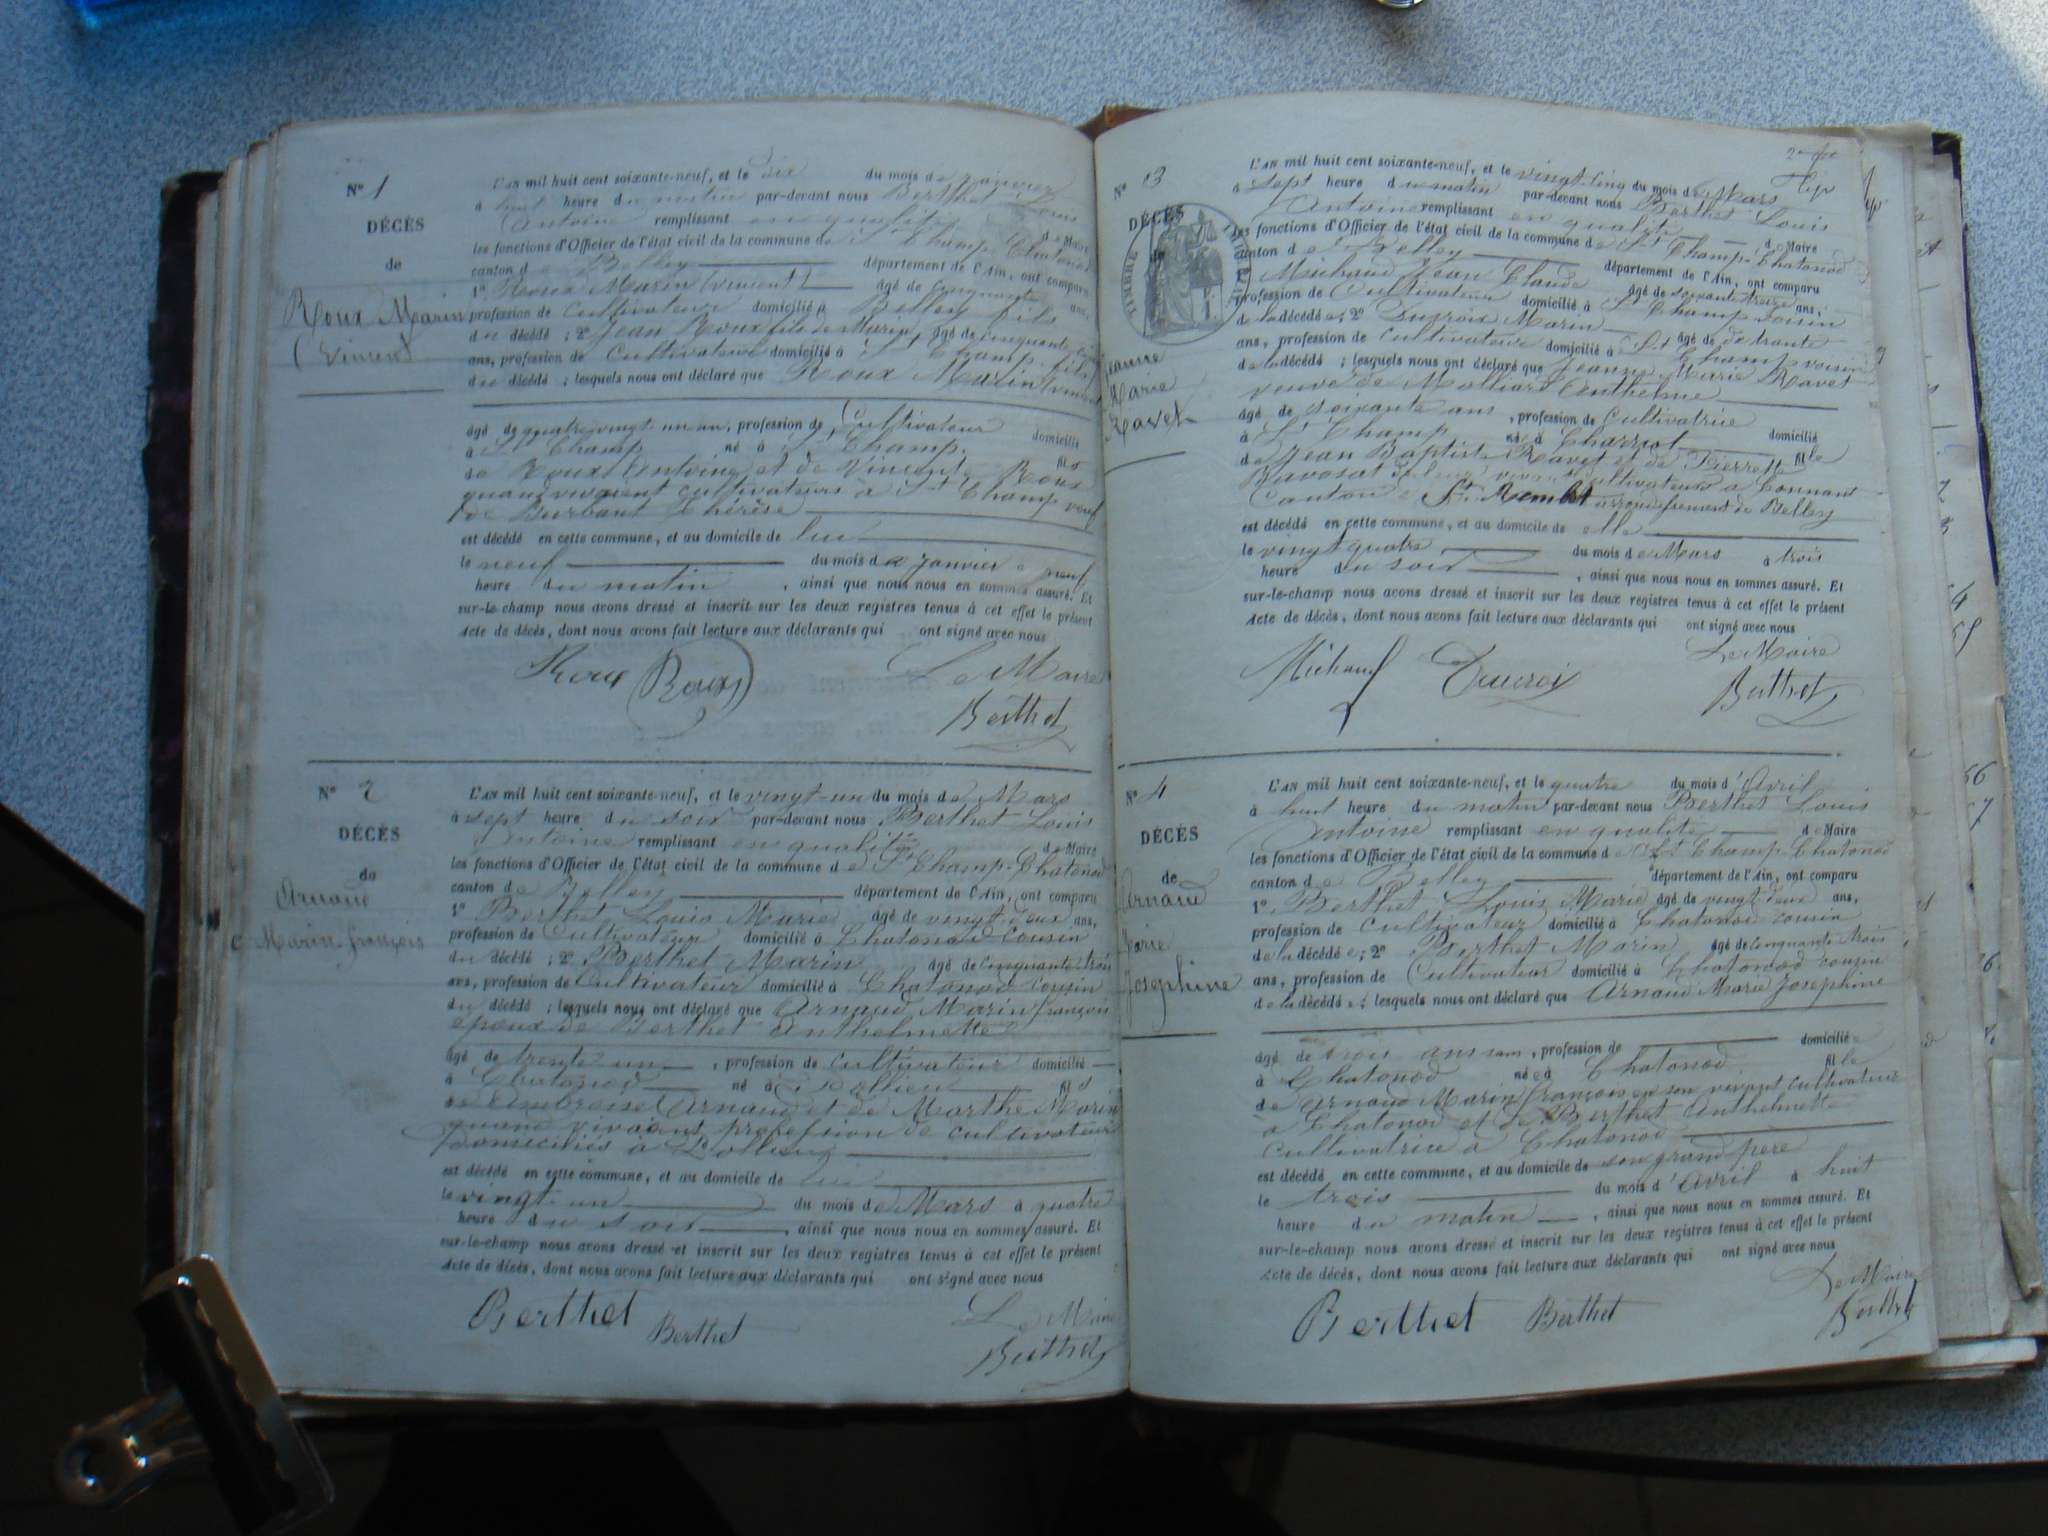 N° 1
DÉCÈS
de
Roux Marin
(Vincent)
L'AN mil huit cent soixante-neuf, et le dix du mois de janvier
à huit heure du matin par-devant nous Berthet Louis
Antoine remplissant en qualité de Maire
les fonctions d'Officier de l'état civil de la commune de St Champ-Chatonod
canton de Belley département de l'Ain, ont comparu
1° Roux Marin (vincent) âgé de cinquante ans,
profession de cultivateur domicilié à Belley fils
du décédé ; 2° Jean Roux fils de Marin âgé de cinquante
ans, profession de cultivateur domicilié à St Champ fils
du décédé ; lesquels nous ont déclaré que Roux Marin (vincent
âgé de quatre vingt un an, profession de Cultivateur domicilié
à St Champ né à St Champ. fils
de Roux Antoine et de Vincente Roux
quand vivaient cultivateurs à St Champ veuf
de Burbant Thérèse
est décédé en cette commune, et au domicile de lui
le neuf du mois de janvier à neuf
heure du matin, ainsi que nous nous en sommes assuré. Et
sur-le-champ nous avons dressé et inscrit sur les deux registres tenus à cet effet le présent
Acte de décès, dont nous avons fait lecture aux déclarants qui ont signé avec nous
Roux Roux Le Maire
Berthet
N° 2
DÉCÈS
de
Arnaud
Marin françois
L'AN mil huit cent soixante-neuf, et le vingt-un du mois de Mars
à sept heure du soir par-devant nous Berthet Louis
Antoine remplissant en qualité de Maire
les fonctions d'Officier de l'état civil de la commune de St Champ-Chatonod
canton de Belley département de l'Ain, ont comparu
1° Berthet Louis Marie âgé de vingt deux ans,
profession de Cultivateur domicilié à Chatonod cousin
du décédé ; 2° Berthet Marin âgé de cinquante trois
ans, profession de Cultivateur domicilié à Chatonod cousin
du décédé ; lesquels nous ont déclaré que Arnaud Marin françois
époux de Berthet Anthelmette
âgé de trente un, profession de cultivateur domicilié
à Chatonod né à Rollieu fils
de Ambroise Arnaud et de Marthe Marin
quand vivaient profession de cultivateur
domiciliés à Rollieu
est décédé en cette commune, et au domicile de lui
le vingt un du mois de Mars à quatre
heure du soir, ainsi que nous nous en sommes assuré. Et
sur-le-champ nous avons dressé et inscrit sur les deux registres tenus à cet effet le présent
Acte de décès, dont nous avons fait lecture aux déclarants qui ont signé avec nous
Berthet Berthet Le Maire
Berthet
N° 3
DÉCÈS
TIMBRE
Jeanne
Marie
Ravet
L'AN mil huit cent soixante-neuf, et le vingt-cinq du mois de Mars
à sept heure du matin par-devant nous Berthet Louis
Antoine remplissant en qualité de Maire
les fonctions d'Officier de l'état civil de la commune de St Champ-Chatonod
canton de Belley département de l'Ain, ont comparu
1° Michaud Jean Claude âgé de soixante treize ans,
profession de Cultivateur domicilié à St Champ voisin
de la décédée ; 2° Ducroix Marin âgé de trente
ans, profession de cultivateur domicilié à St Champ voisin
de la décédé ; lesquels nous ont déclaré que Jeanne Marie Ravet
veuve de Molliard Anthelme
âgé de soixante ans, profession de Cultivatrice domicilié
à St Champ né à Charriot fille
de Jean Baptiste Ravet et de Pierrette
Ravosat de leur vivant cultivateurs à Connant
Canton de St Rembt arrondissement de Belley
est décédé en cette commune, et au domicile de elle
le vingt quatre du mois de Mars à trois
heure du soir, ainsi que nous nous en sommes assuré. Et
sur-le-champ nous avons dressé et inscrit sur les deux registres tenus à cet effet le présent
Acte de décès, dont nous avons fait lecture aux déclarants qui ont signé avec nous
Michaud Ducroix Le Maire
Berthet
N° 4
DÉCÈS
de
Arnaud
Marie
Josephine
L'AN mil huit cent soixante-neuf, et le quatre du mois d'Avril
à huit heure du matin par-devant nous Berthet Louis
Antoine remplissant en qualité de Maire
les fonctions d'Officier de l'état civil de la commune de St Champ-Chatonod
canton de Belley département de l'Ain, ont comparu
1° Berthet Louis Marie âgé de vingt deux ans,
profession de cultivateur domicilié à Chatonod cousin
de la décédée ; 2° Berthet Marin âgé de cinquante trois
ans, profession de Cultivateur domicilié à Chatonod cousin
de la décédée ; lesquels nous ont déclaré que Arnaud Marie Josephine
âgé de trois ans, profession de domicilié
à Chatonod née à Chatonod fille
de Arnaud Marin françois en son vivant cultivateur
à Chatonod et de Berthet Anthelmette
cultivatrice à Chatonod
est décédé en cette commune, et au domicile de son grand père
le trois du mois d'Avril à huit
heure du matin, ainsi que nous nous en sommes assuré. Et
sur-le-champ nous avons dressé et inscrit sur les deux registres tenus à cet effet le présent
Acte de décès, dont nous avons fait lecture aux déclarants qui ont signé avec nous
Berthet Berthet Le Maire
Berthet